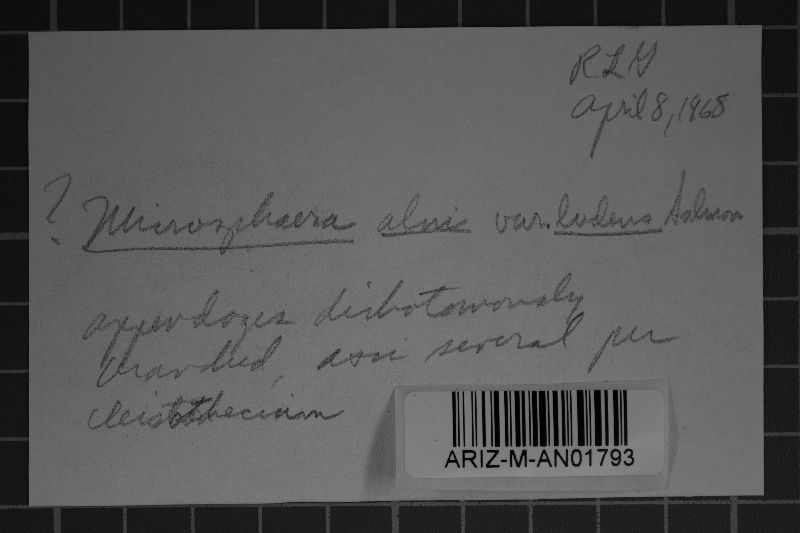 RLG
April 8, 1968
? Microsphaera alni var. ludens Salmon
appendages dichotomously
branched, asci several per
cleistothecium
ARIZ-M-AN01793